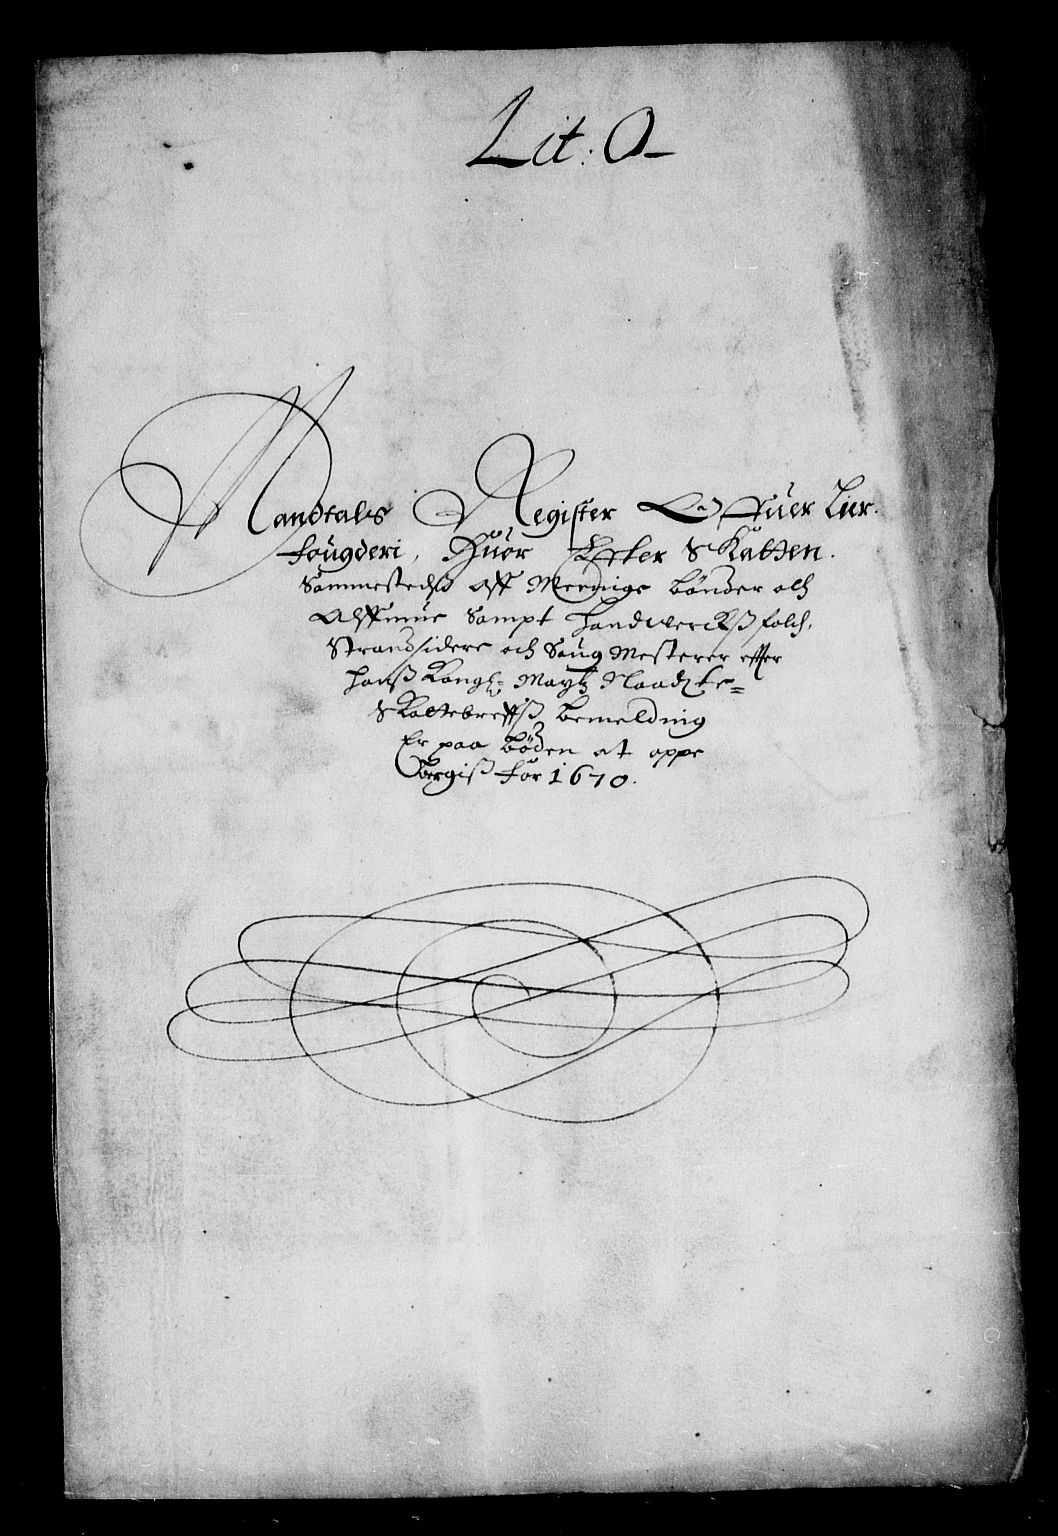 Lit: O
Mandtals Register Offuer Lier
fougderi, Huor Effter Skatten.
Sammestedß Aff Menige bønder och
Ahlmue Sampt Handwerckßfolch,
Strandsidere och Saug Mestere effter
Hanß Kongl: Maytz Naadste
Skattebreffß bemelding
Er paa bøden at oppe
bergiß for 1670.